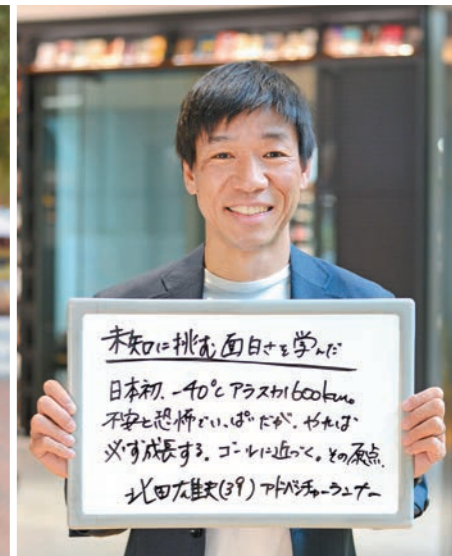 未知に挑む面白さを学んだ
日本初、-40℃アラスカ1600km。
不安と恐怖でいっぱいだが、やれば
必ず成長する。ゴールに近づく。その原点
北田雄夫(39)アドベンチャーランナー